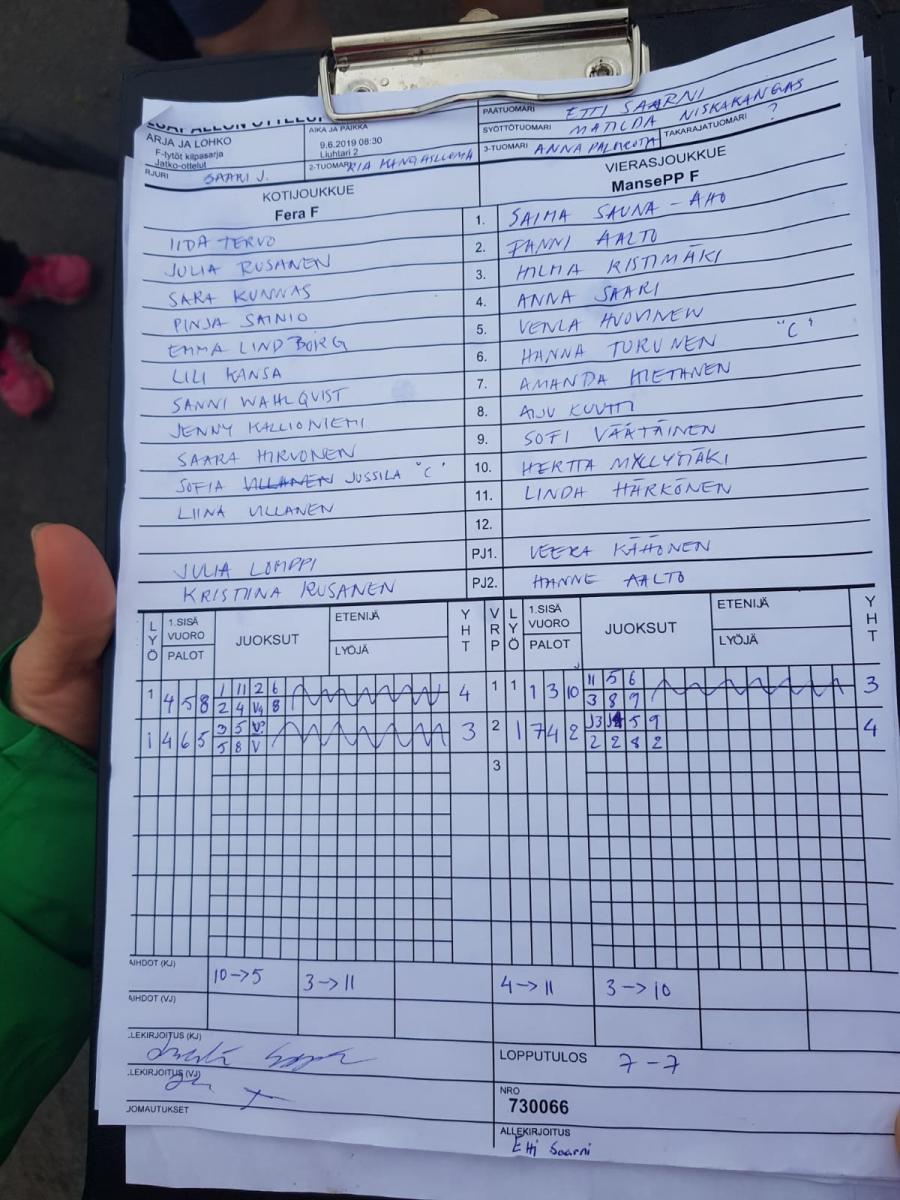 ARJA JA LOHKO
F-tytöt kilpasarja
Jatko-ottelut
RJURI SAARI J.
AIKA JA PAIKKA
9.6.2019 08:30
Liuhtari 2
2-TUOMARI
PÄÄTUOMARI ETTI SAARNI
SYÖTTÖTUOMARI MATILDA NISKAKANGAS
3-TUOMARI ANNA TAKARAJATUOMARI ?
KOTIJOUKKUE
Fera F
VIERASJOUKKUE
MansePP F
IIDA TERVO 1. SAIMA SAUNA-AHO
JULIA RUSANEN 2. FANNI AALTO
SARA KUNNAS 3. HILMA RISTIMÄKI
PINJA SAINIO 4. ANNA SAARI
EMMA LINDBORG 5. VENLA HUOVINEN
LILI KANSA 6. HANNA TURUNEN "C"
SANNI WAHLQVIST 7. AMANDA HIETANEN
JENNY KALLIONIEMI 8. AIJU KUUTTI
SAARA HIRVONEN 9. SOFI VÄÄTÄINEN
SOFIA ULLANEN JUSSILA "C" 10. HERTTA MYLLYMÄKI
LIINA ULLANEN 11. LINDA HÄRKÖNEN
12.
JULIA LOMPPI PJ1. VEERA KÄHÖNEN
KRISTIINA RUSANEN PJ2. HANNE AALTO
LYÖ 1.SISÄ VUORO PALOT JUOKSUT ETENIJÄ LYÖJÄ YHT VRP LYÖ 1.SISÄ VUORO PALOT JUOKSUT ETENIJÄ LYÖJÄ YHT
1 4 5 8 1 11 2 6 4 1 1 1 3 10 11 5 6 3
2 4 V4 8 3 8 9
1 4 6 5 3 5 V 3 2 1 7 4 2 J3 5 9 4
5 8 V 2 2 8 2
3
AIHDOT (KJ) 10→5 3→11 4→11 3→10
AIHDOT (VJ)
LEKIRJOITUS (KJ)
LOPPUTULOS 7-7
LEKIRJOITUS (VJ)
NRO
730066
JOMAUTUKSET
ALLEKIRJOITUS
Etti Saarni